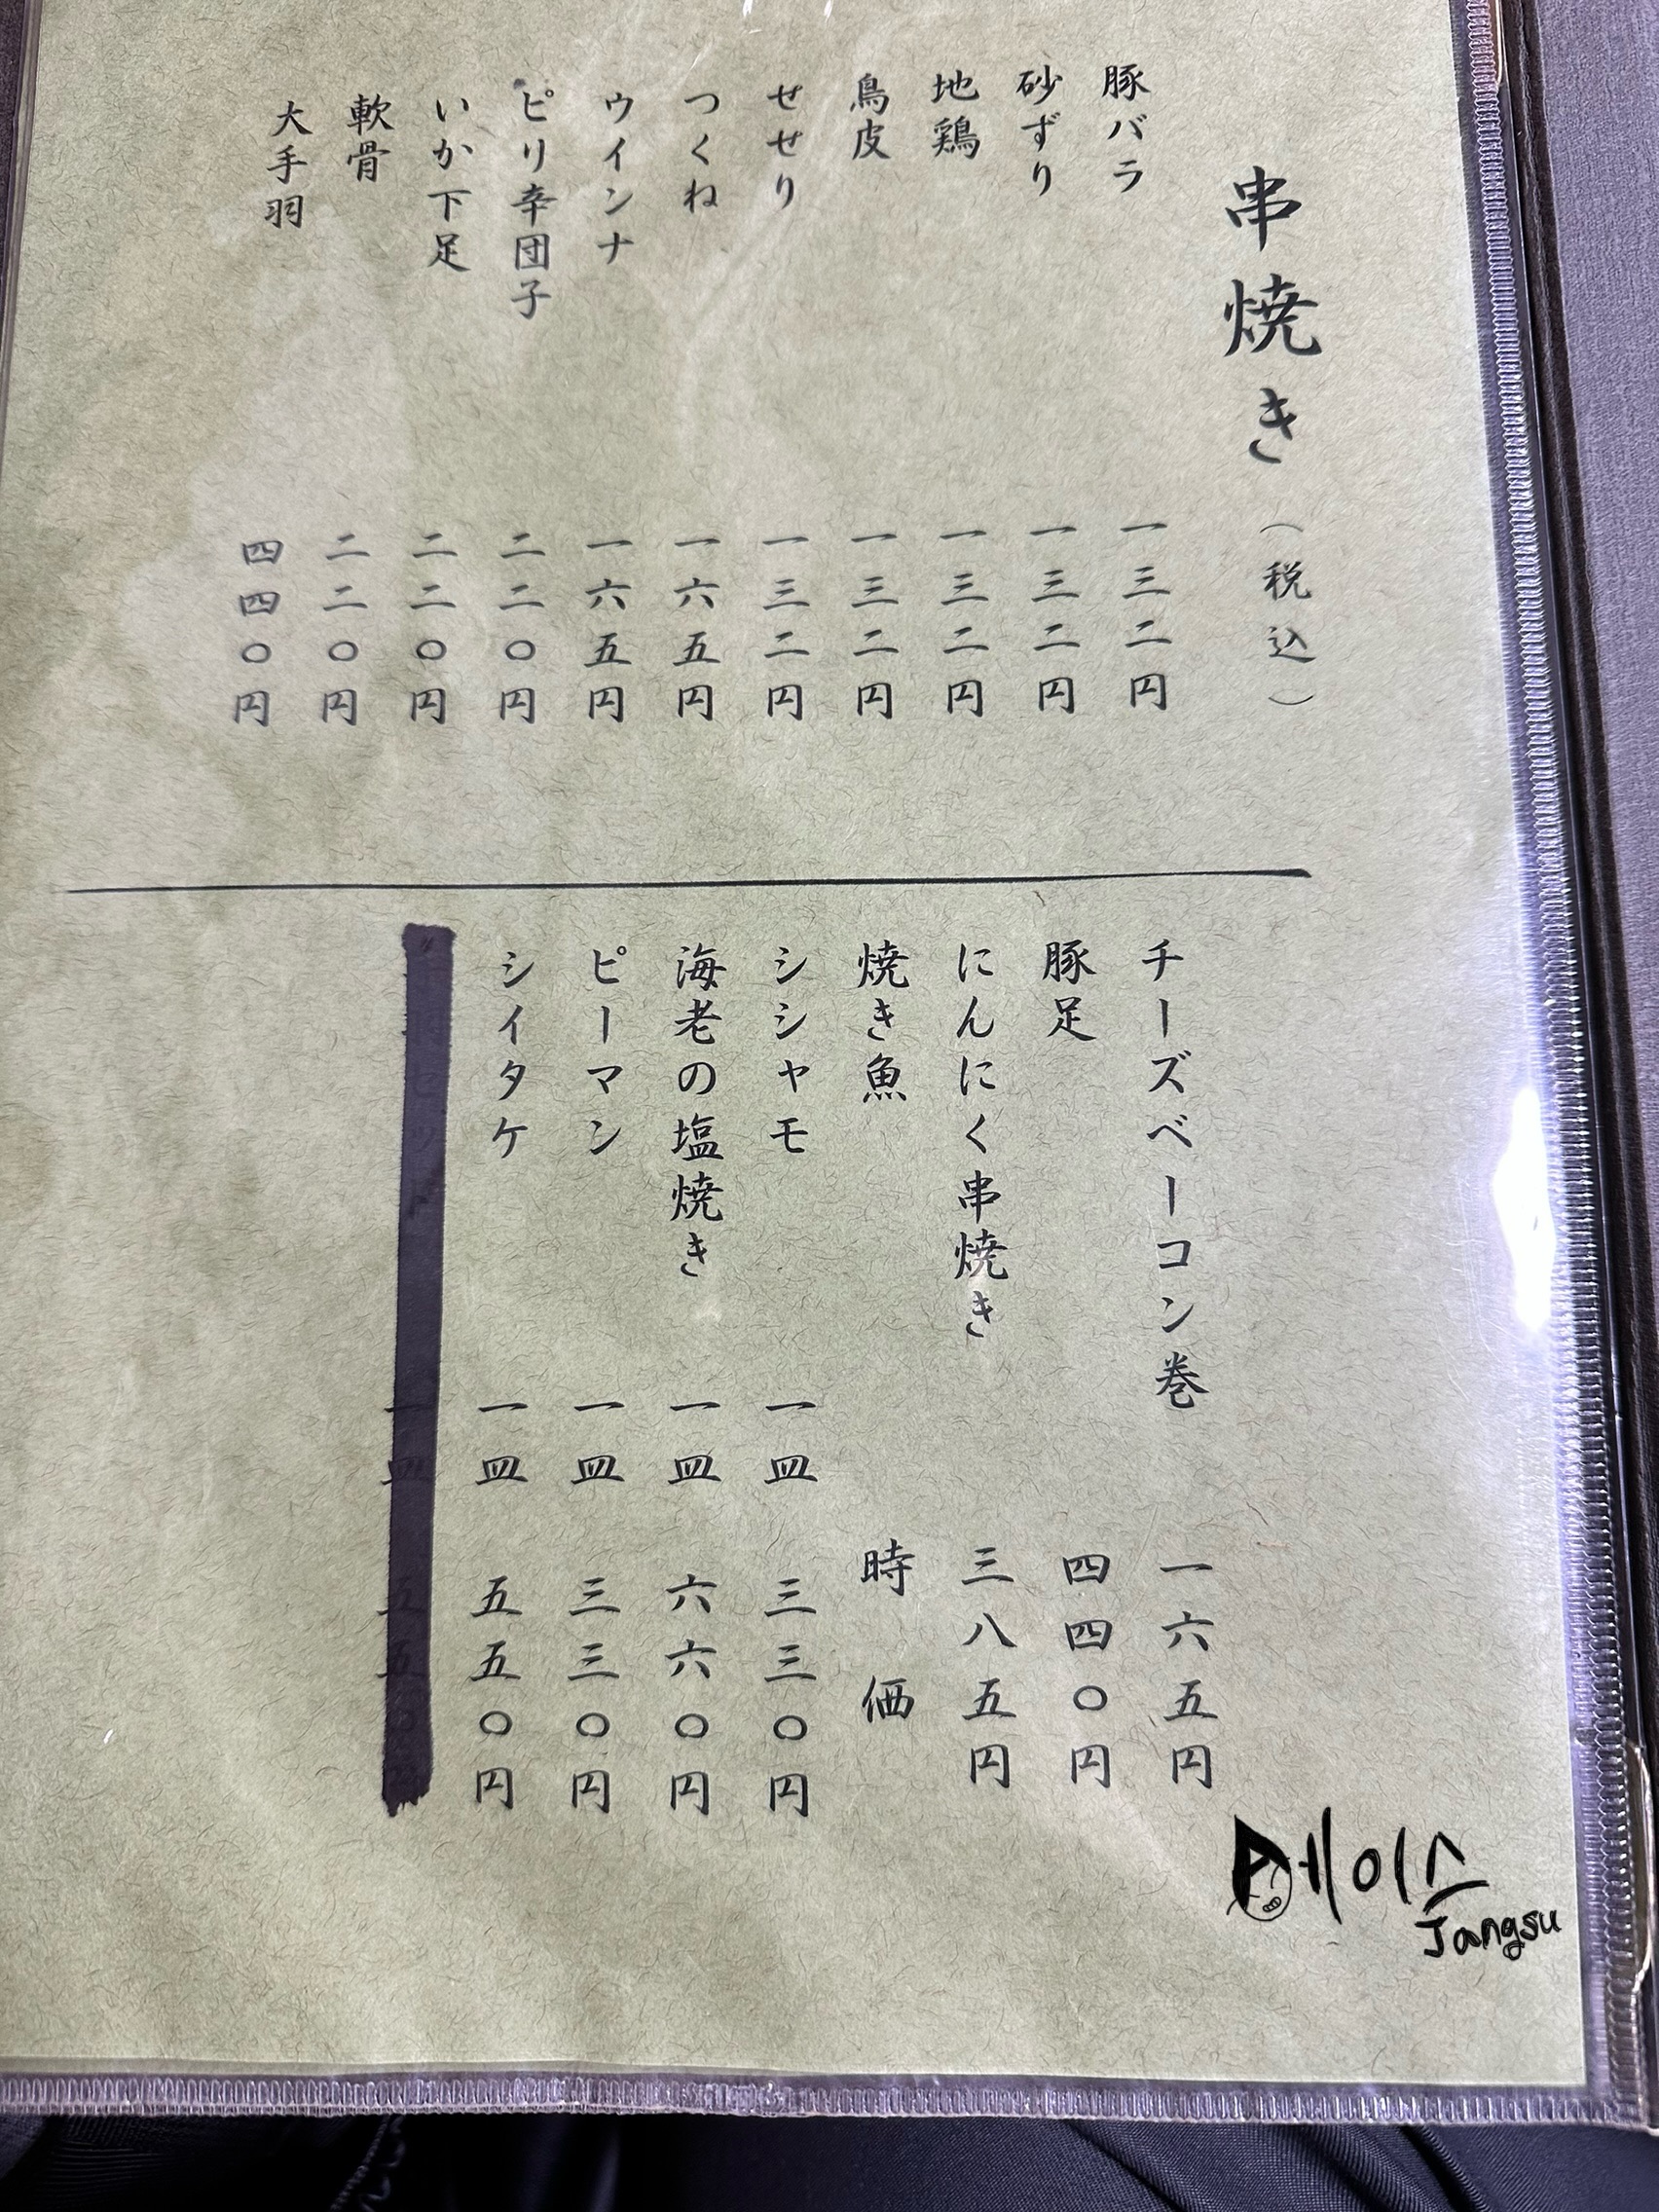 串焼き（税込）
豚バラ 一三二円
砂ずり 一三二円
地鶏 一三二円
鳥皮 一三二円
せせり 一三二円
つくね 一六五円
ウインナ 一六五円
ピリ辛団子 二二〇円
いか下足 二二〇円
軟骨 二二〇円
大手羽 四四〇円
チーズベーコン巻 一六五円
豚足 四四〇円
にんにく串焼き 三八五円
焼き魚 時価
シシャモ 一皿 三三〇円
海老の塩焼き 一皿 六六〇円
ピーマン 一皿 三三〇円
シイタケ 一皿 五五〇円
一皿 五五〇
페이스
Jangsu